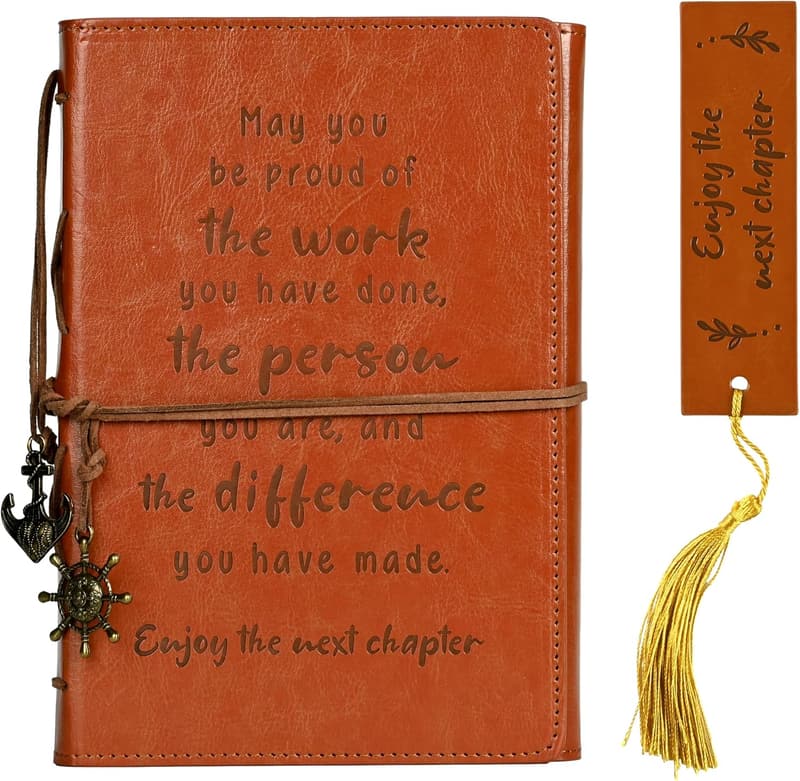 May you
be proud of
the work
you have done,
the person
you are, and
the difference
you have made.
Enjoy the next chapter
Enjoy the
next chapter